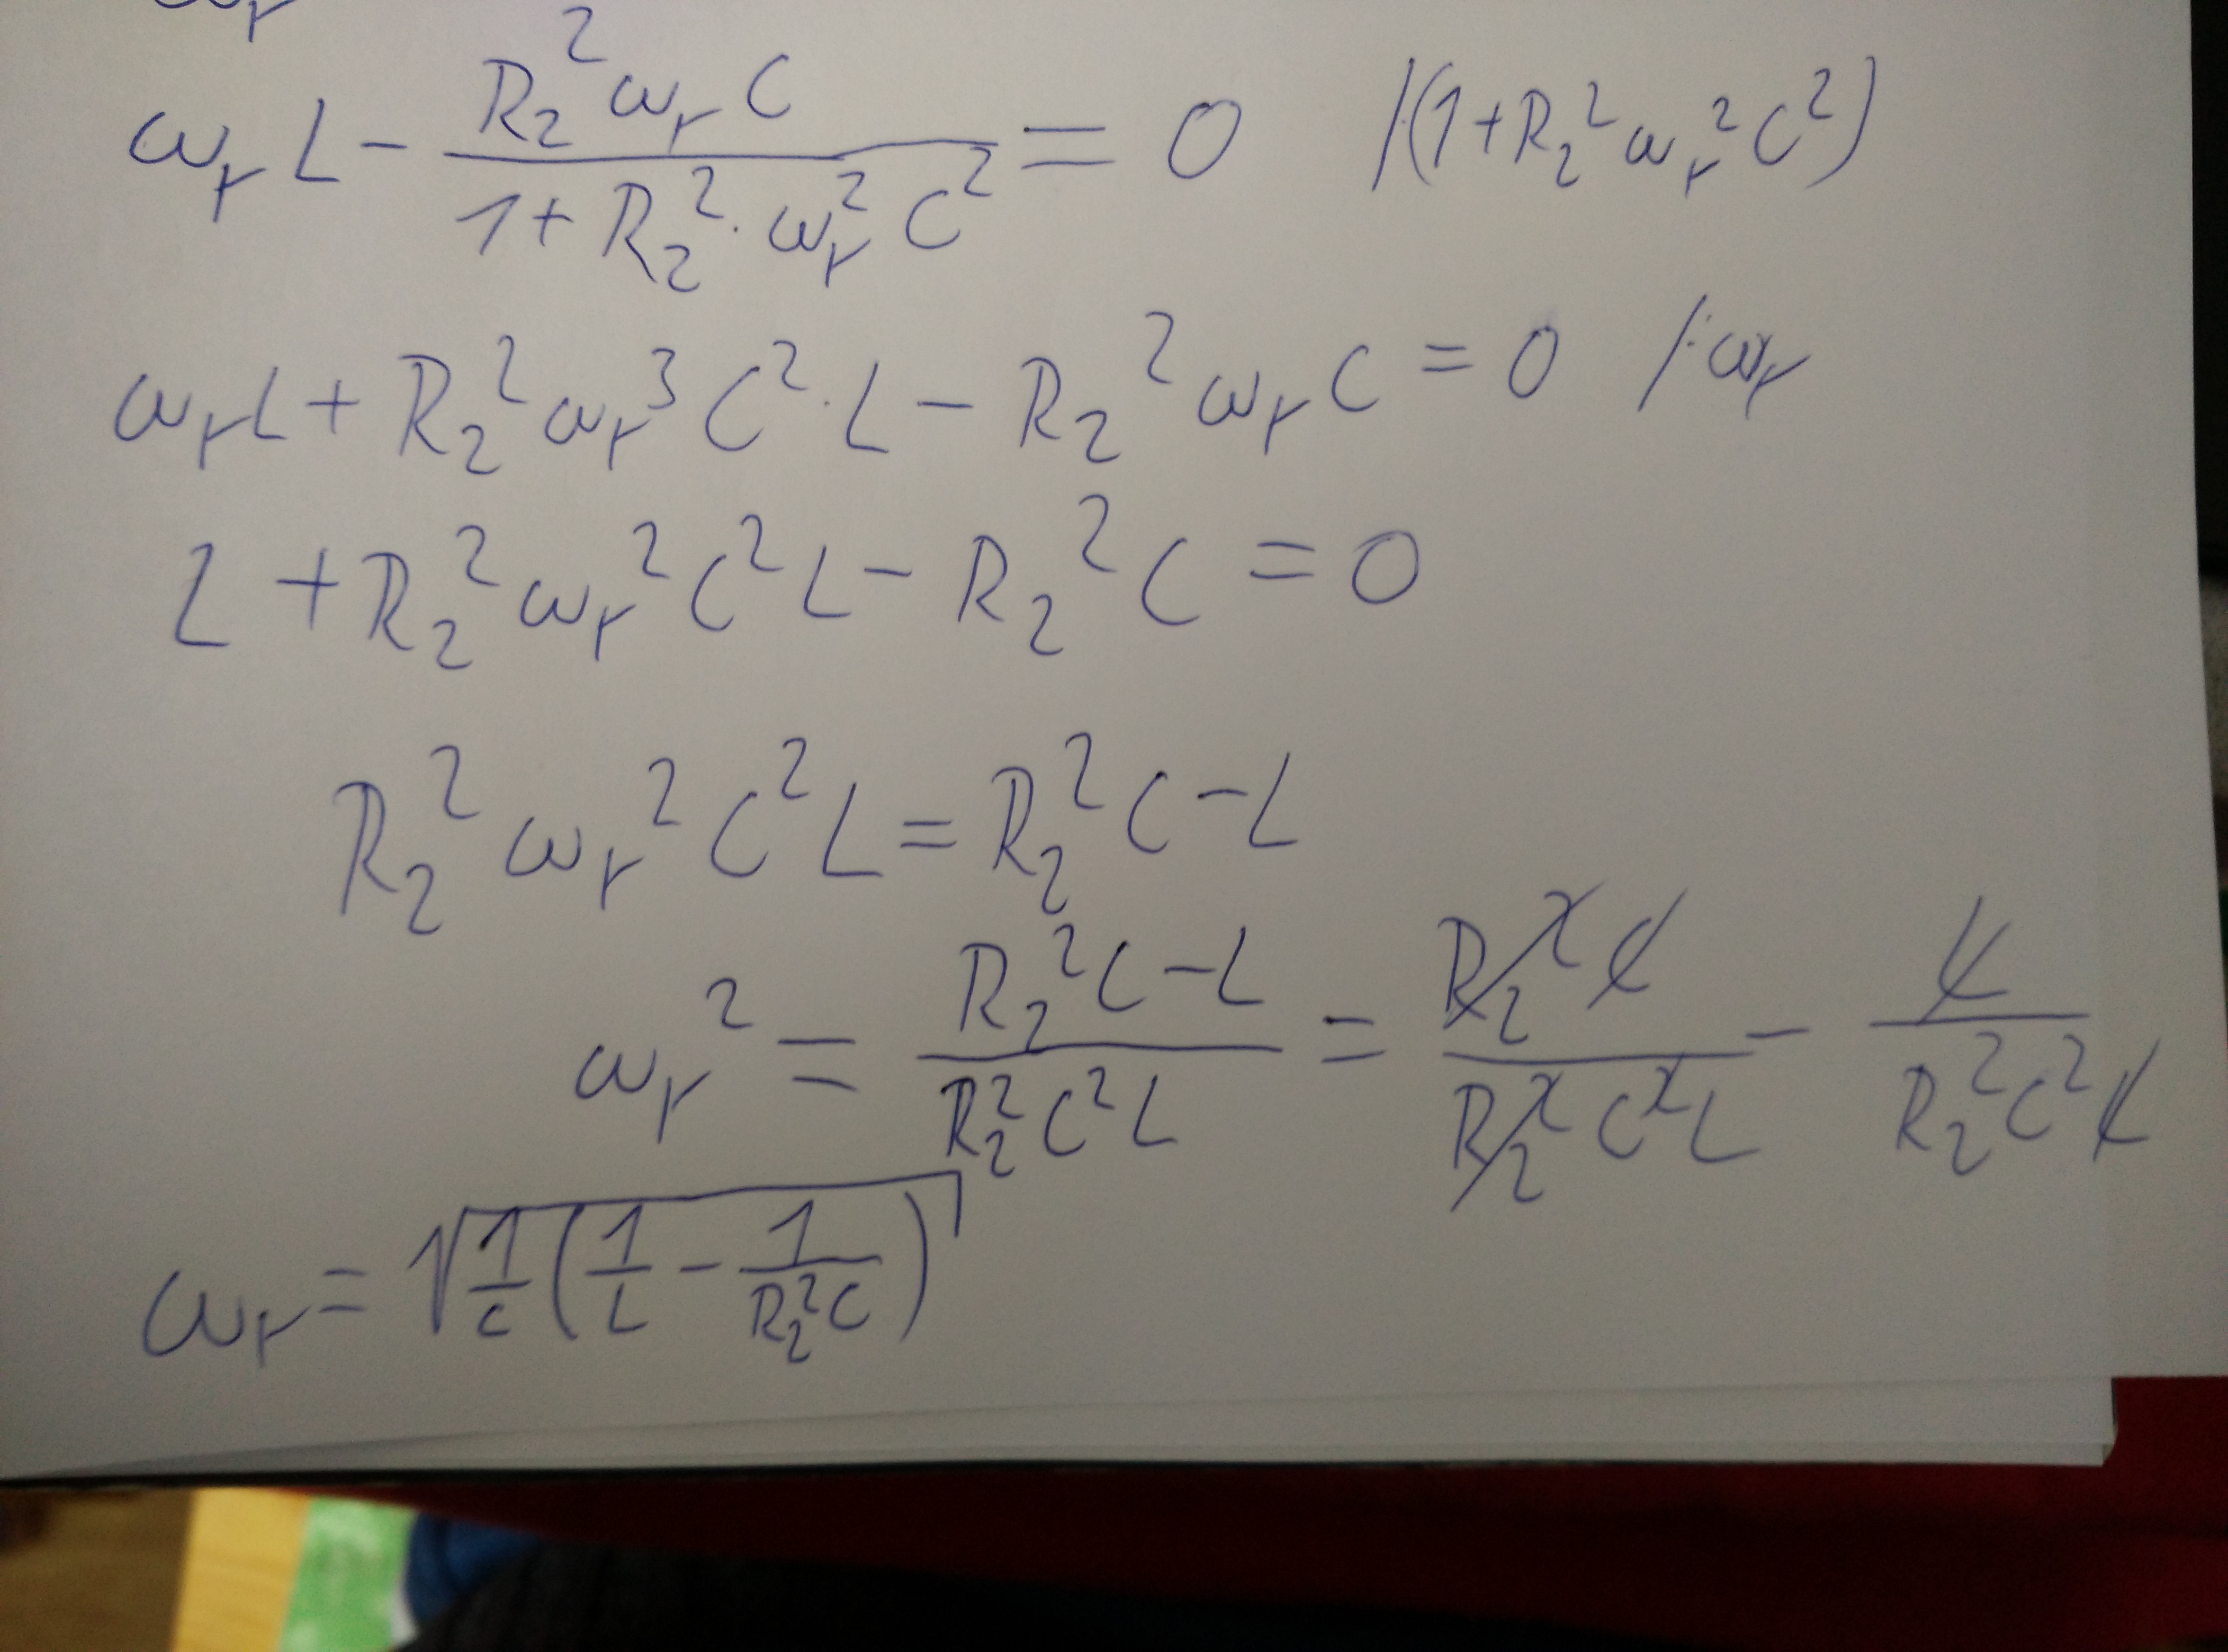 ωᵣ
ωᵣL - (R₂²ωᵣC)/(1+R₂²·ωᵣ²C²) = 0 /(1+R₂²ωᵣ²C²)
ωᵣL + R₂²ωᵣ³C²·L - R₂²ωᵣC = 0 /:ωᵣ
L + R₂²ωᵣ²C²L - R₂²C = 0
R₂²ωᵣ²C²L = R₂²C - L
ωᵣ² = (R₂²C-L)/(R₂²C²L) = (R₂²C)/(R₂²C²L) - L/(R₂²C²L)
ωᵣ = √(1/C(1/L - 1/(R₂²C)))